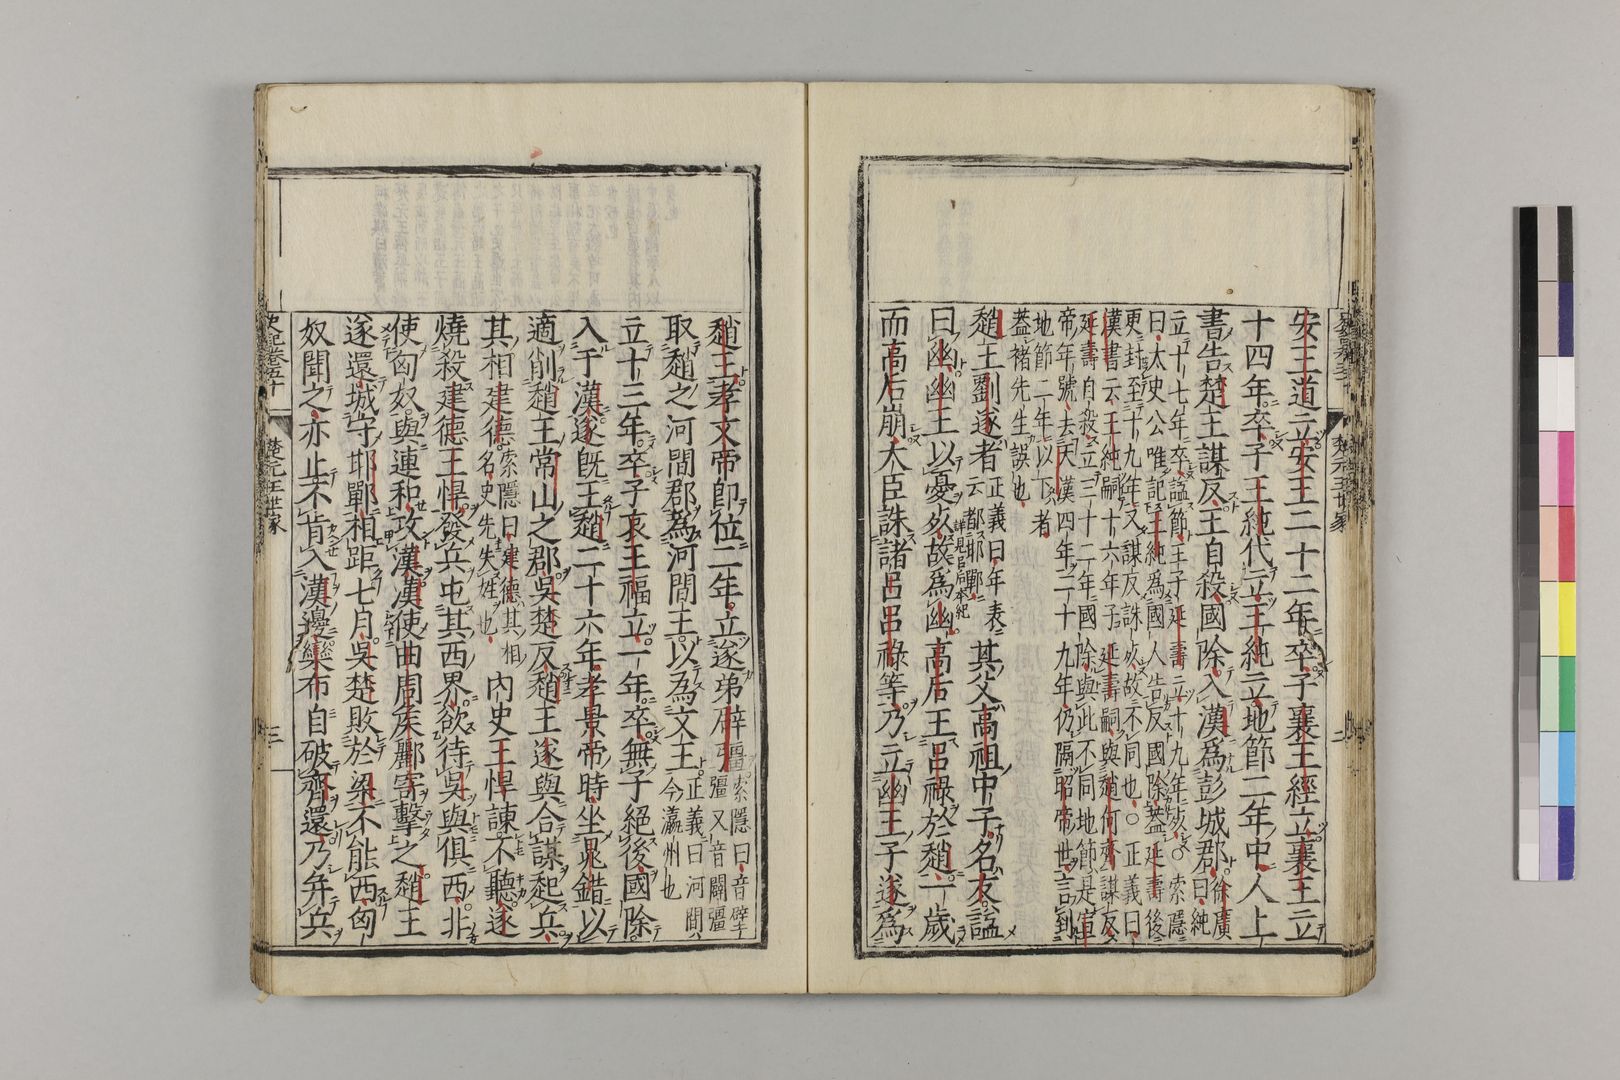 安王道立安王二十二年卒子襄王經立襄王立
十四年卒子王純代立王純立地節二年中人上
書告楚王謀反王自殺國除入漢爲彭城郡徐廣曰純
立十七年卒謚節王子延壽立十九年死○索隱
曰太史公唯記王純爲國人告反國除蓋延壽後
更封至十九年又謀反誅死故不同也○正義曰
漢書云王純嗣十六年子延壽嗣與趙何齊謀反
延壽自殺立三十二年國除與此不同地節是宣
帝年號去天漢四年二十九年仍隔昭帝世言到
地節二年以下者
蓋褚先生誤也
趙王劉遂者正義曰年表云都邯鄲其父高祖中子名友謚
詳見呂后本紀
曰幽幽王以憂死故爲幽高后王呂祿於趙一歲
而高后崩大臣誅諸呂呂祿等乃立幽王子遂爲
趙王孝文帝卽位二年立遂弟辟疆索隱曰音壁
彊又音闢疆
取趙之河間郡爲河間王以爲文王正義曰河間
今瀛州也
立十三年卒子哀王福立一年卒無子絕後國除
入于漢遂旣王趙二十六年孝景帝時坐鼂錯以
適削趙王常山之郡吳楚反趙王遂與合謀起兵
其相建德索隱曰建德其相
名史先失姓也內史王悍諫不聽遂
燒殺建德王悍發兵屯其西界欲待吳與俱西北
使匈奴與連和攻漢漢使曲周侯酈寄擊之趙王
遂還城守邯鄲相距七月吳楚敗於梁不能西匈
奴聞之亦止不肯入漢邊欒布自破齊還乃幷兵
史記卷五十
楚元王世家
三
楚元王世家
二